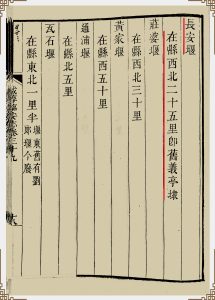 長安堰
在縣西北二十五里即舊義亭埭
莊婆堰
在縣西北三十里
黃家堰
在縣西五十里
通浦堰
在縣北五里
瓦石堰
在縣東北一里半
堰東舊有劉
郎堰今廢